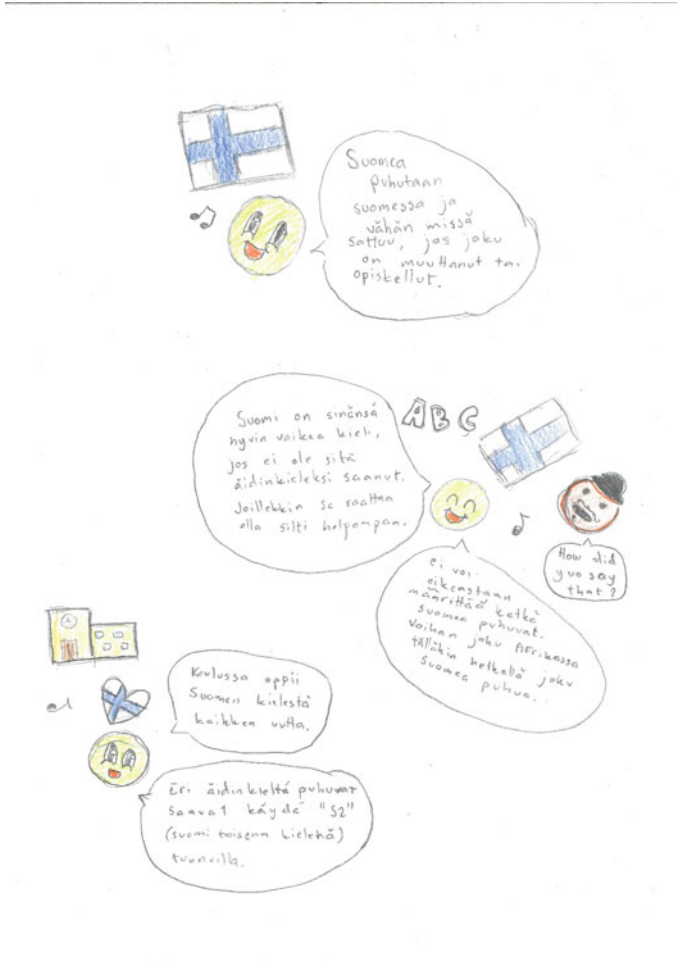 Suomea
puhutaan
suomessa ja
vähän missä
sattuu, jos joku
on muuttanut tai
opiskellut.
ABC
Suomi on sinänsä
hyvin vaikea kieli,
jos ei ole sitä
äidinkieleksi saanut.
Joillekkin se saattaa
olla silti helpompaa.
How did
yuo say
that?
ei voi
oikeastaan
määrittää ketkä
suomea puhuvat.
voihan joku Afrikassa
tälläkin hetkellä joku
suomea puhua...
Koulussa oppii
Suomen kielestä
kaikkea uutta.
Eri äidinkieltä puhuvat
saavat käydä "S2"
(suomi toisena kielenä)
tunneilla.